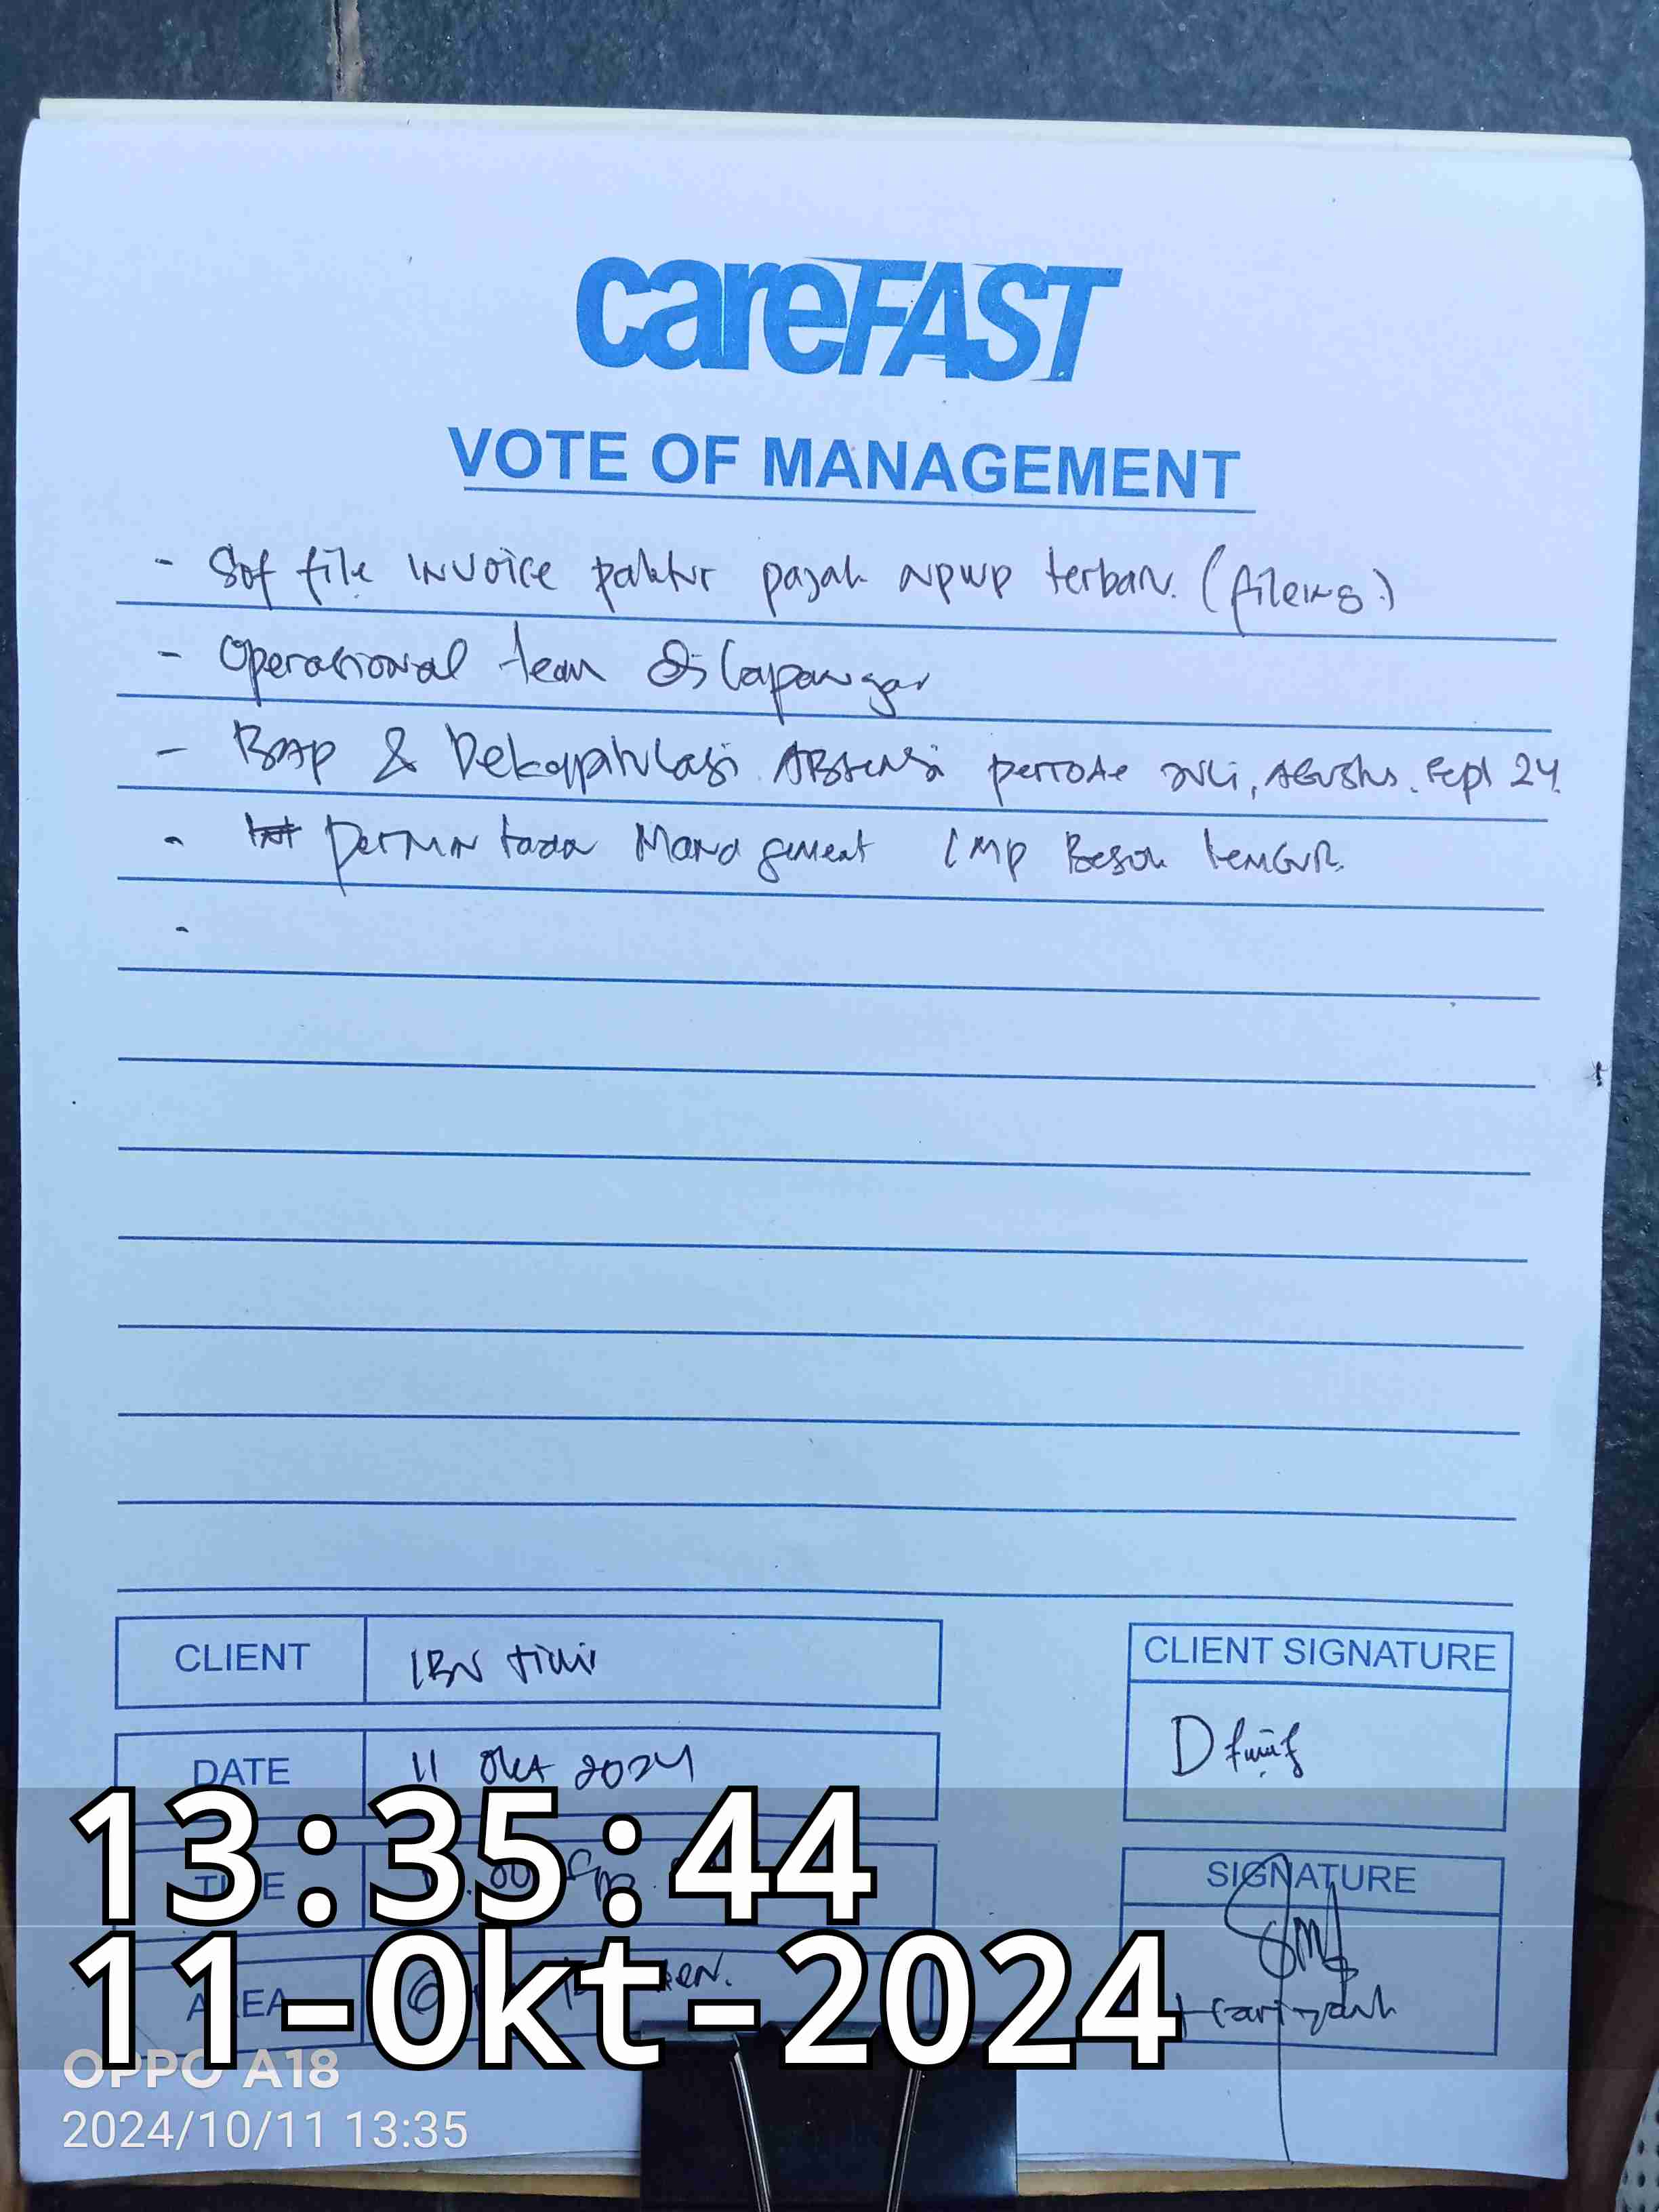 careFAST
VOTE OF MANAGEMENT
- Sof file invoice paktur pajak NPWP terbaru. (fileing.)
- Operasional team di lapangan
- BAP & Rekapitulasi ABSENSI periode Juli, Agustus. Sept 24.
- Permintaan Management IMP Besok
-
CLIENT
CLIENT SIGNATURE
DATE 11 Okt 2024
13:35:44
SIGNATURE
11-Okt-2024
OPPO A18
2024/10/11 13:35